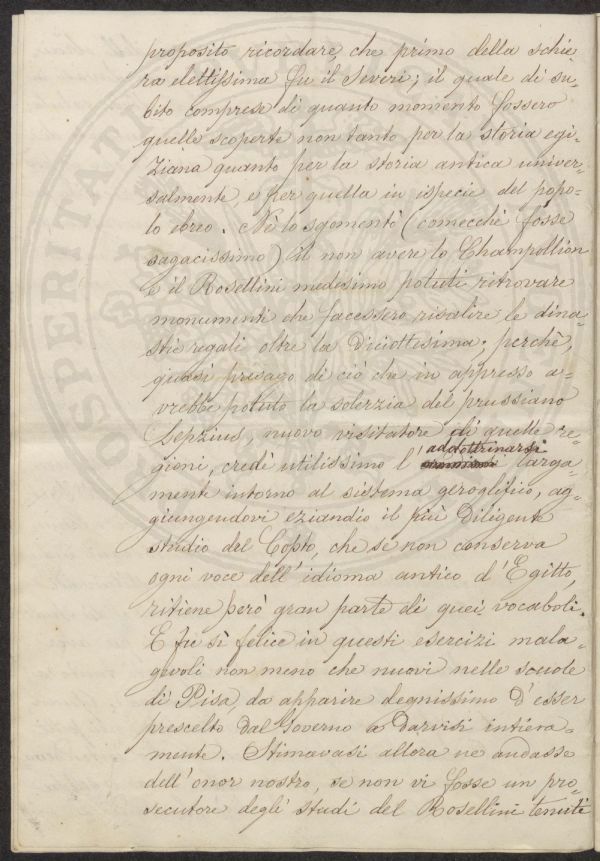 proposito ricordare, che primo della schie-
ra elettissima fu il Severi; il quale di su-
bito comprese di quanto momento fossero
quelle scoperte non tanto per la storia egi-
ziana quanto per la storia antica univer-
salmente e per quella in ispecie del popo-
lo ebreo. Nè lo sgomentò (comecchè fosse
sagacissimo) il non avere lo Champollion
e il Rosellini medesimo potuti ritrovare
monumenti che facessero risalire le dina-
stie regali oltre la diciottesima: perchè,
quasi presago di ciò che in appresso a-
vrebbe potuto la solerzia del prussiano
Lepzius, nuovo visitatore di quelle re-
gioni, credè utilissimo l'addottrinarsi larga-
mente intorno al sistema geroglifico, ag-
giungendovi eziandio il più diligente
studio del Copto, che se non conserva
ogni voce dell'idioma antico d'Egitto,
ritiene però gran parte di quei vocaboli.
E fu sì felice in questi esercizi mala-
gevoli non meno che nuovi nelle scuole
di Pisa, da apparire degnissimo d'esser
prescelto dal Governo a darvisi intiera-
mente. Stimavasi allora ne andasse
dell'onor nostro, se non vi fosse un pro-
secutore degli studi del Rosellini tenuti
PROSPERITATI